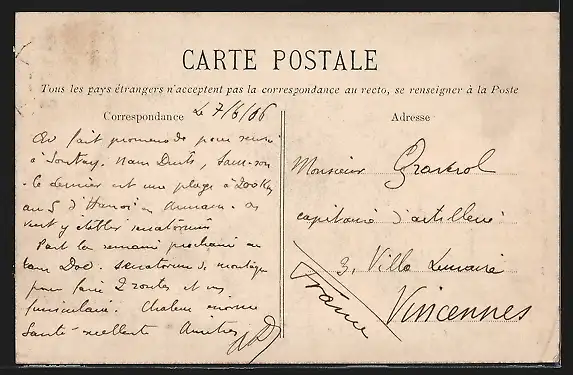 CARTE POSTALE
Tous les pays étrangers n'acceptent pas la correspondance au recto, se renseigner à la Poste
Correspondance
Adresse
Le 7/6/06
fait promenade pour
à Sontay. Nam Dinh, Sam-Son
Ce dernier est une plage à 200 K
au S d'Hanoi en Annam. On
veut y établir sanatorium
Part la semaine prochaine au
Tam Dao. Sanatorium de montagne
pour faire 2 routes et un
funiculaire. Chaleur énorme
Santé excellente Amitiés
Monsieur
capitaine d'artillerie
3, Villa Lemaire
Vincennes
France